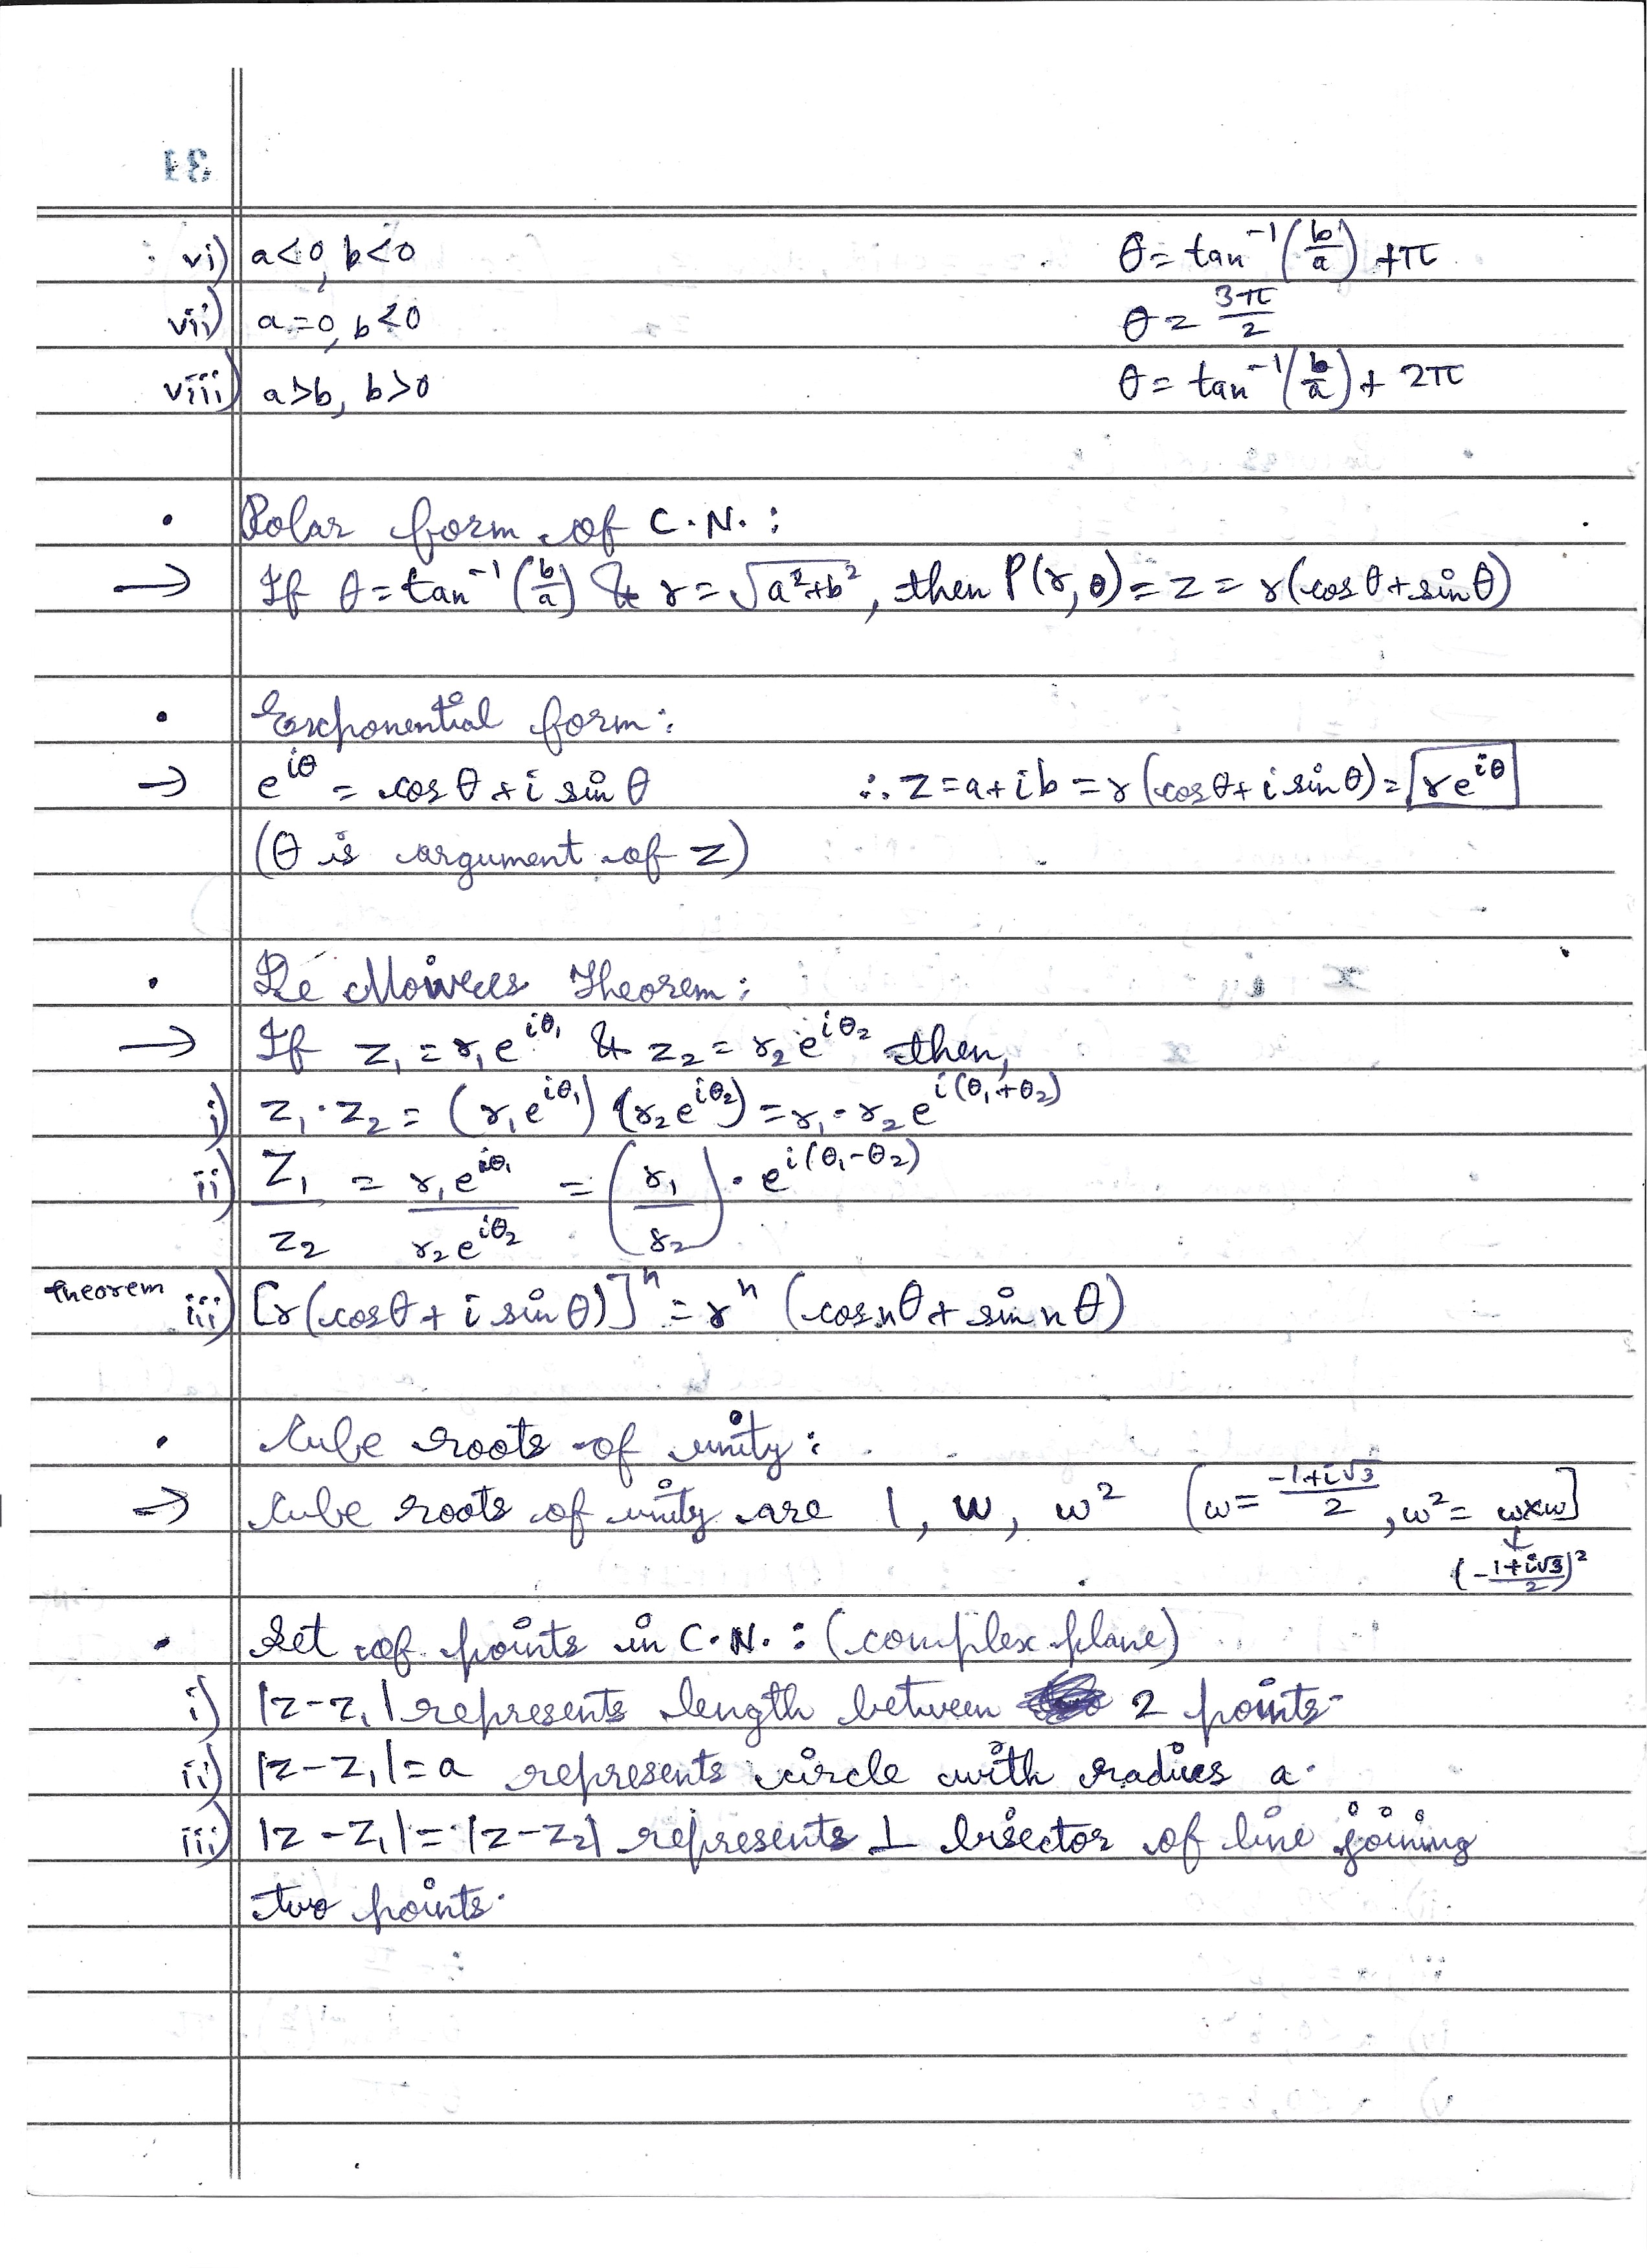 31
vi) a<0, b<0 θ = tan⁻¹(b/a) +π
vii) a=0, b<0 θ = 3π/2
viii) a>b, b>0 θ = tan⁻¹(b/a) + 2π
• Polar form of C.N. :
→ If θ = tan⁻¹(b/a) & r = √(a²+b²), then P(r, θ) = z = r(cos θ + sin θ)
• Exponential form :
→ e^{iθ} = cos θ + i sin θ ∴ z = a+ib = r(cos θ + i sin θ) = re^{iθ}
(θ is argument of z)
• De Moivres Theorem :
→ If z₁ = r₁e^{iθ₁} & z₂ = r₂e^{iθ₂} then,
i) z₁·z₂ = (r₁e^{iθ₁}) (r₂e^{iθ₂}) = r₁·r₂e^{i(θ₁+θ₂)}
ii) z₁/z₂ = r₁e^{iθ₁}/r₂e^{iθ₂} = (r₁/r₂)·e^{i(θ₁-θ₂)}
theorem iii) [r(cosθ + i sin θ)]ⁿ = rⁿ (cos nθ + sin nθ)
• Cube roots of unity :
→ Cube roots of unity are 1, w, w² [w = (-1+i√3)/2, w² = w×w]
↓
(-1+i√3/2)²
• Set of points in C.N. : (complex plane)
i) |z-z₁| represents length between 2 points.
ii) |z-z₁| = a represents circle with radius a.
iii) |z-z₁| = |z-z₂| represents ⊥ bisector of line joining
two points.